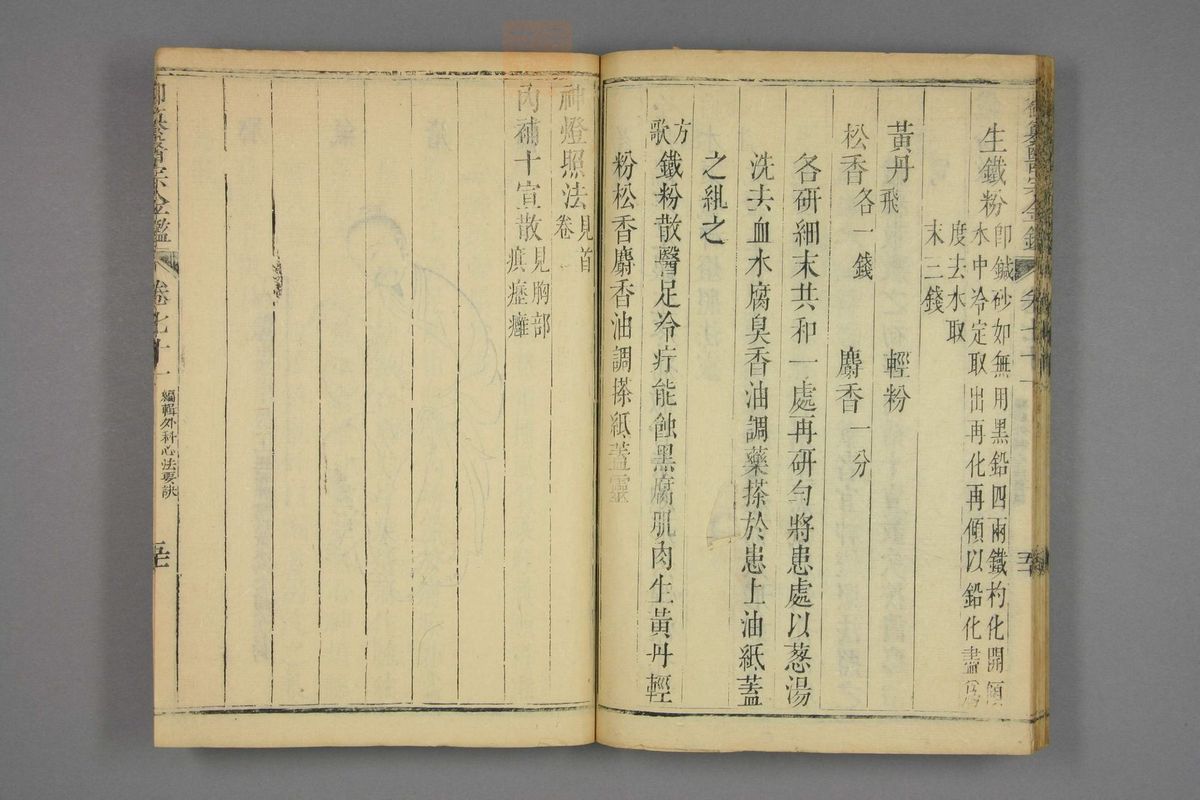 生鐵粉即鍼砂如無用黑鉛四兩鐵杓化開傾
水中冷定取出再化再傾以鉛化盡為
度去水取
末三錢
黃丹飛 輕粉
松香各一錢 麝香一分
各研細末共和一處再研勻將患處以葱湯
洗去血水腐臭香油調藥搽於患上油紙蓋
之紮之
方歌 鐵粉散醫足冷疔能蝕黑腐肌肉生黃丹輕
粉松香麝香油調搽紙蓋靈
神燈照法見首卷
內補十宣散見胸部疾癧癰
御纂醫宗金鑑 卷七十一 編輯外科心法要訣